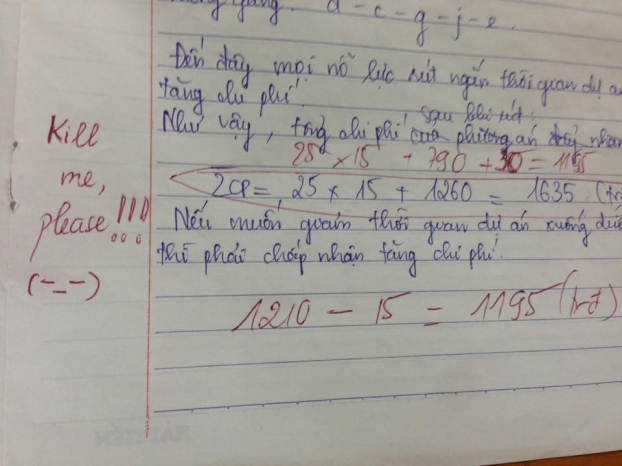 d - c - g - j - e.
Đến đây mọi nỗ lực rút ngắn thời gian dự án
tăng chi phí.
sau khi rút:
Như vậy, tổng chi phí của phương án
25 x 15 + 790 + 30 = 1195
ΣCP = 25 x 15 + 1260 = 1635. (tr
Nếu muốn giảm thời gian dự án xuống
thì phải chấp nhận tăng chi phí.
1210 - 15 = 1195 (trđ)
Kill
me,
please!!!
(-_-)